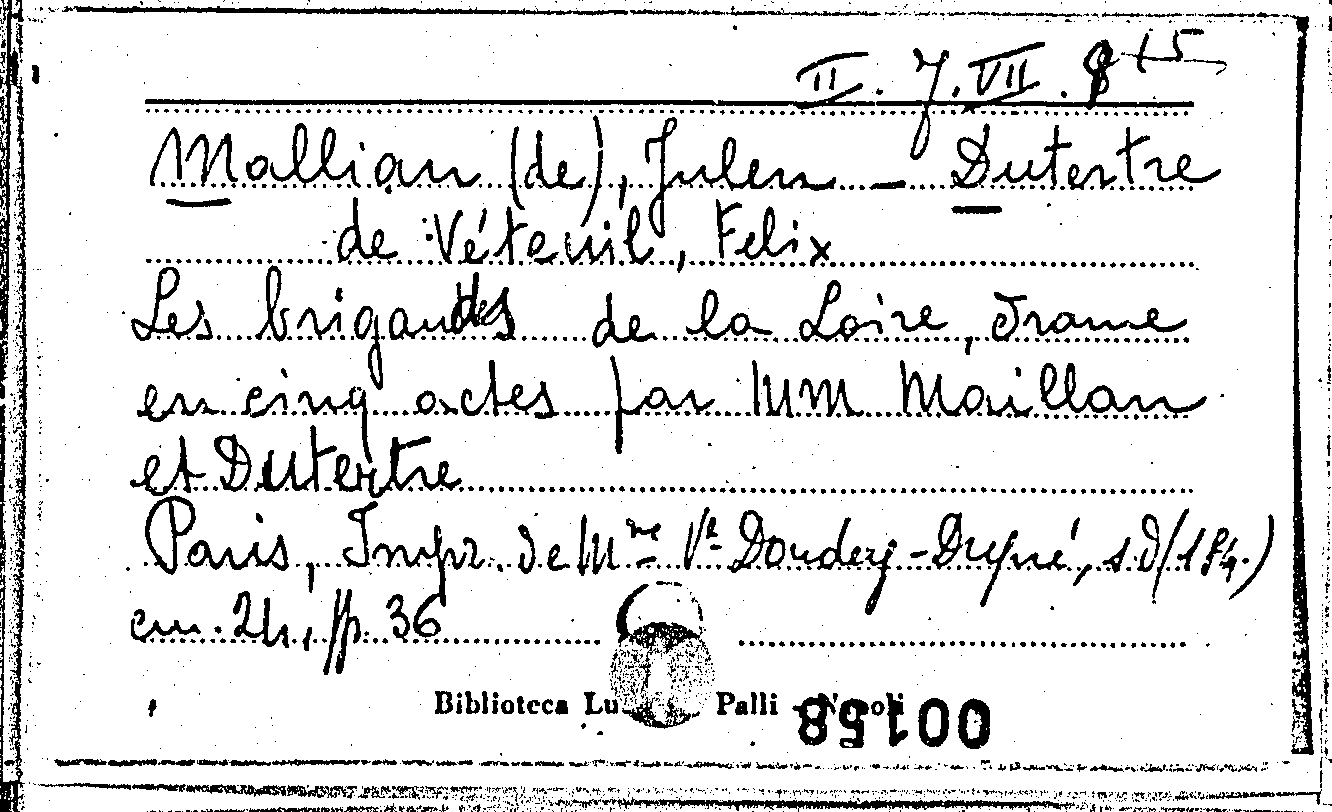 II. J. VII. 8 15
Mallian (de), Julien - Dutertre
de Véteuil, Felix
Les brigands de la Loire, drame
en cinq actes par MM Maillan
et Dutertre
Paris, Impr. de Mme Ve Dondey-Dupré, s.d (184.)
cm. 24, pp. 36
Biblioteca Lu Palli - Napoli
00158